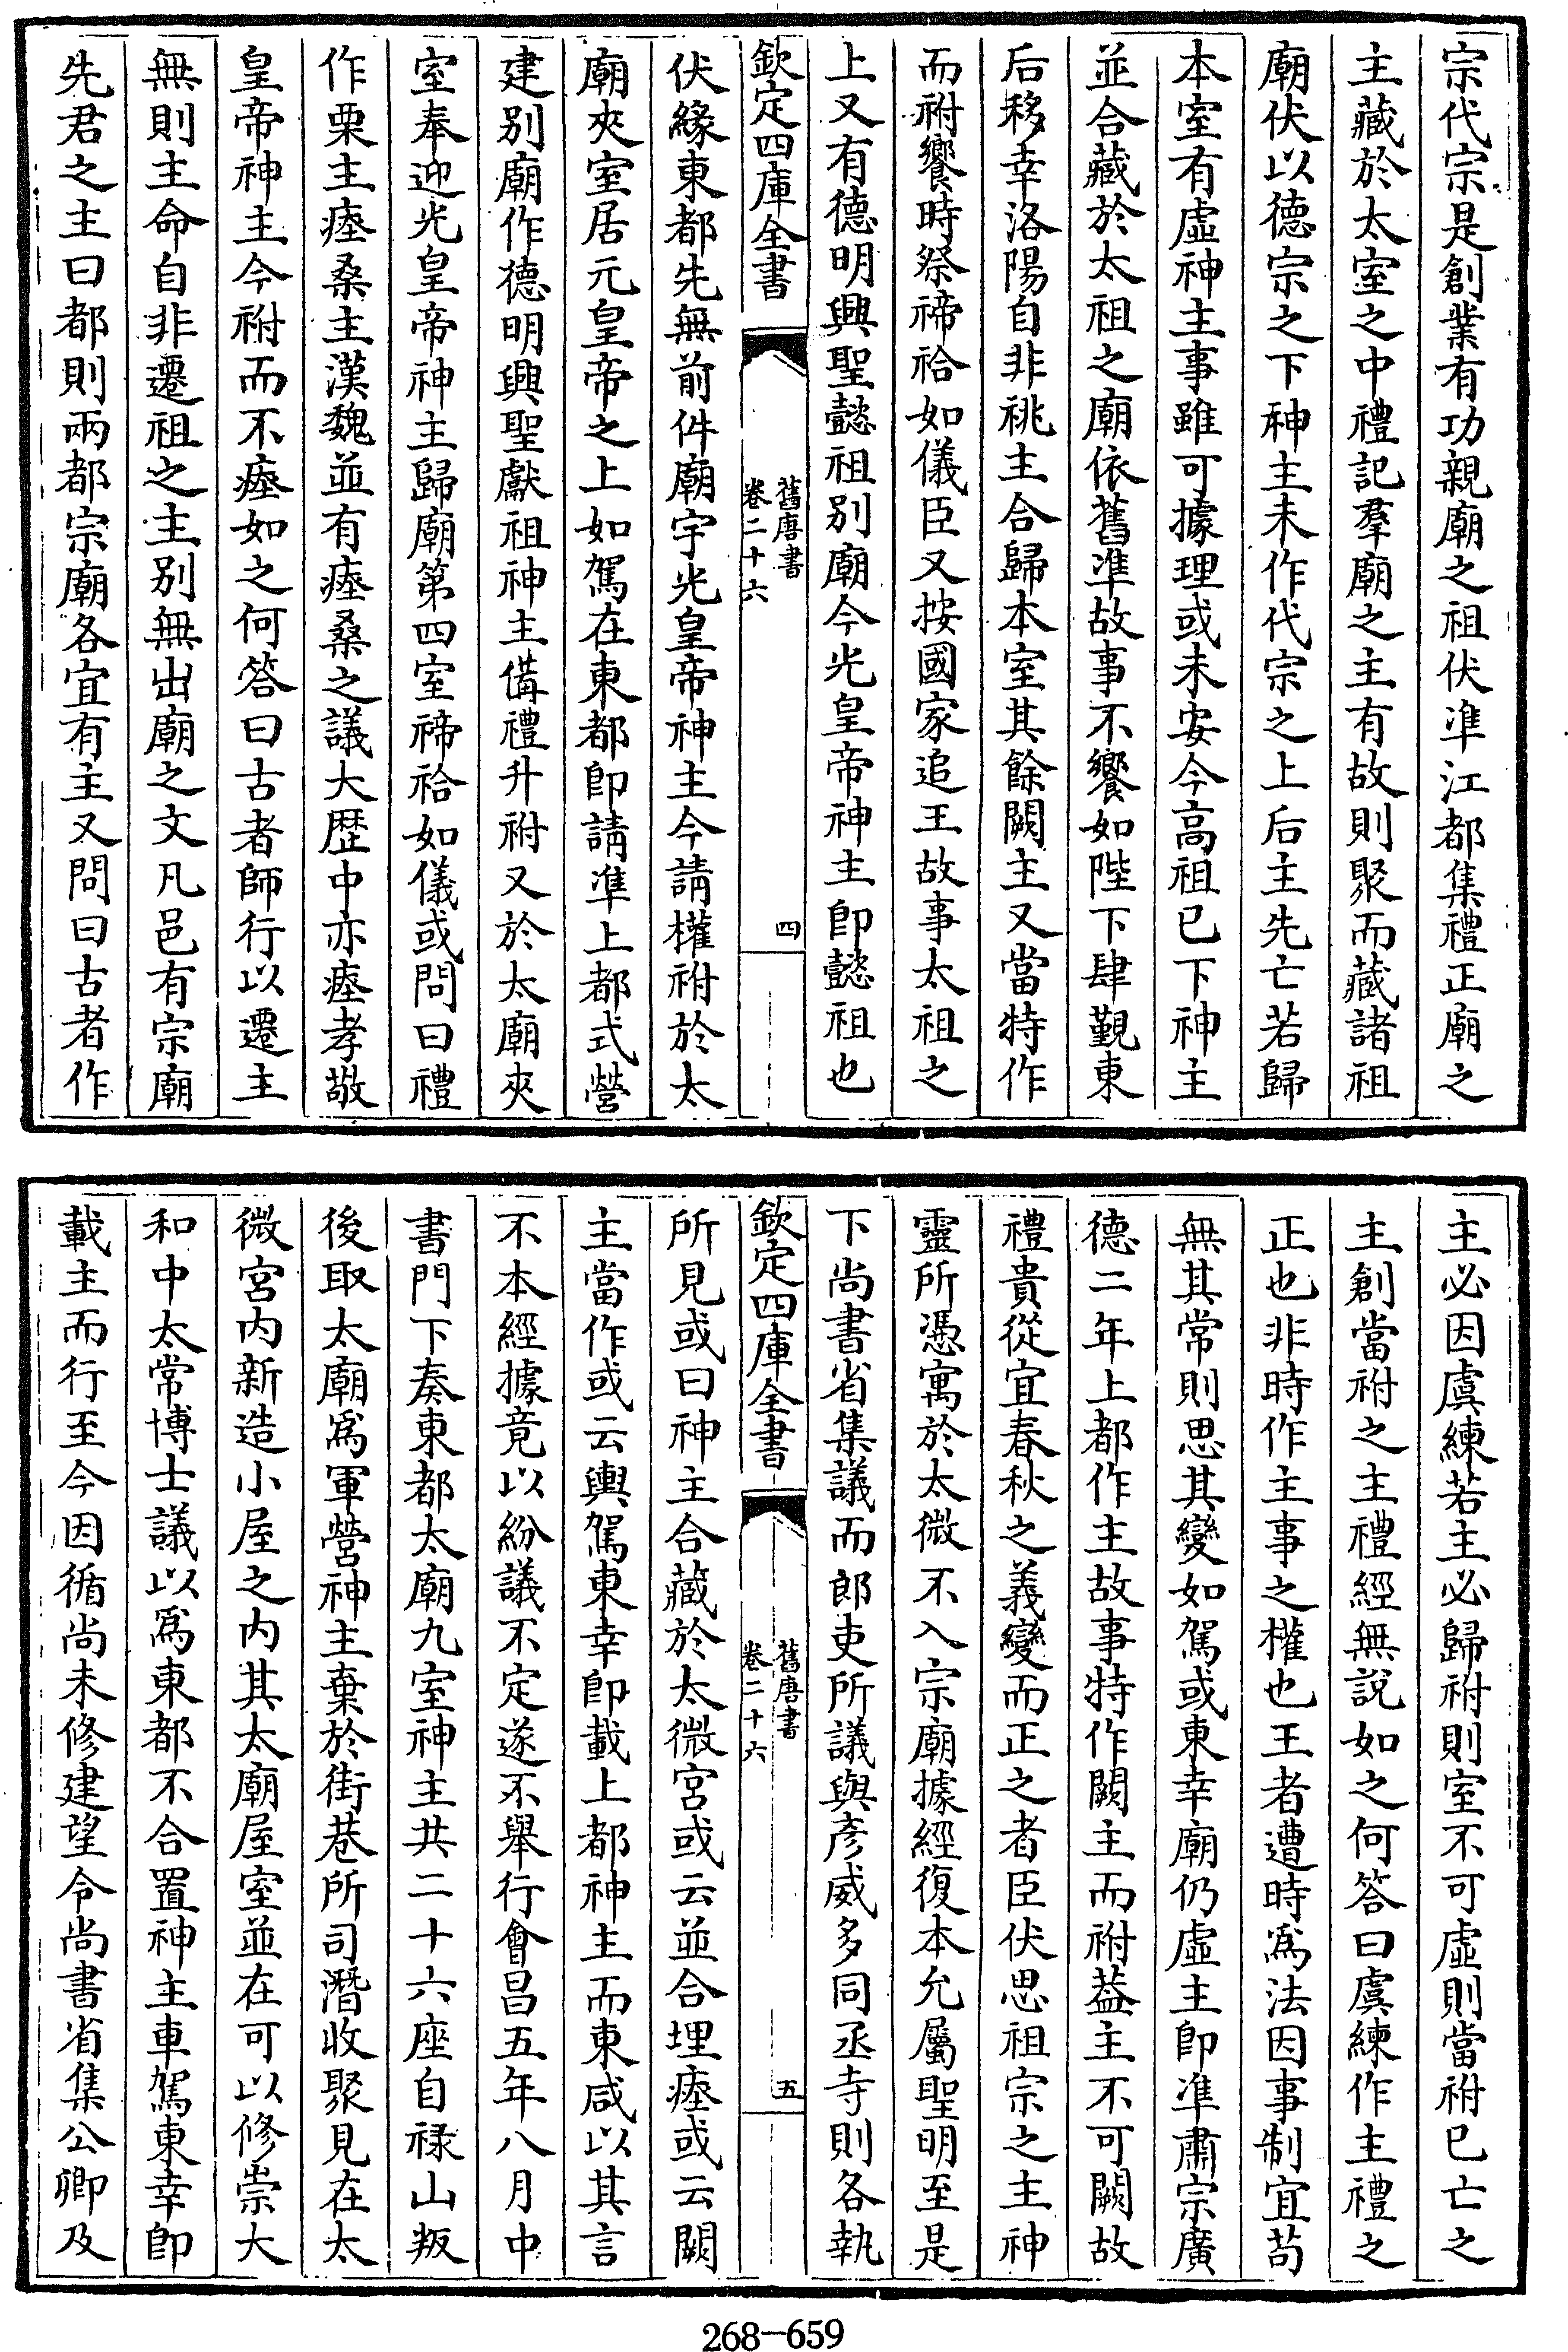 宗代宗是創業有功親廟之祖伏準江都集禮正廟之
主藏於太室之中禮記羣廟之主有故則聚而藏諸祖
廟伏以德宗之下神主未作代宗之上后主先亡若歸
本室有虛神主事雖可據理或未安今高祖已下神主
並合藏於太祖之廟依舊準故事不饗如陛下肆覲東
后移幸洛陽自非祧主合歸本室其餘闕主又當特作
而祔饗時祭禘祫如儀臣又按國家追王故事太祖之
上又有德明興聖懿祖别廟今光皇帝神主即懿祖也
欽定四庫全書
舊唐書
卷二十六
四
伏緣東都先無前件廟宇光皇帝神主今請權祔於太
廟夾室居元皇帝之上如駕在東都即請準上都式營
建别廟作德明興聖獻祖神主備禮升祔又於太廟夾
室奉迎光皇帝神主歸廟第四室禘祫如儀或問曰禮
作栗主瘞桑主漢魏並有瘞桑之議大歷中亦瘞孝敬
皇帝神主今祔而不瘞如之何答曰古者師行以遷主
無則主命自非遷祖之主别無出廟之文凡邑有宗廟
先君之主曰都則兩都宗廟各宜有主又問曰古者作
主必因虞練若主必歸祔則室不可虛則當祔已亡之
主創當祔之主禮經無說如之何答曰虞練作主禮之
正也非時作主事之權也王者遭時為法因事制宜苟
無其常則思其變如駕或東幸廟仍虛主即準肅宗廣
德二年上都作主故事特作闕主而祔葢主不可闕故
禮貴從宜春秋之義變而正之者臣伏思祖宗之主神
靈所憑寓於太微不入宗廟據經復本允屬聖明至是
下尚書省集議而郎吏所議與彥威多同丞寺則各執
欽定四庫全書
舊唐書
卷二十六
五
所見或曰神主合藏於太微宮或云並合埋瘞或云闕
主當作或云輿駕東幸即載上都神主而東咸以其言
不本經據竟以紛議不定遂不舉行會昌五年八月中
書門下奏東都太廟九室神主共二十六座自祿山叛
後取太廟為軍營神主棄於街巷所司潛收聚見在太
微宮内新造小屋之内其太廟屋室並在可以修崇大
和中太常博士議以為東都不合置神主車駕東幸即
載主而行至今因循尚未修建望令尚書省集公卿及
268-659